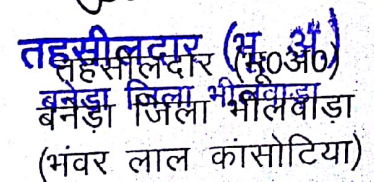 तहसीलदार (भू अ)
तहसीलदार (भू0अ0)
बनेड़ा जिला भीलवाड़ा
बनेड़ा जिला भीलवाड़ा
(भंवर लाल कांसोटिया)